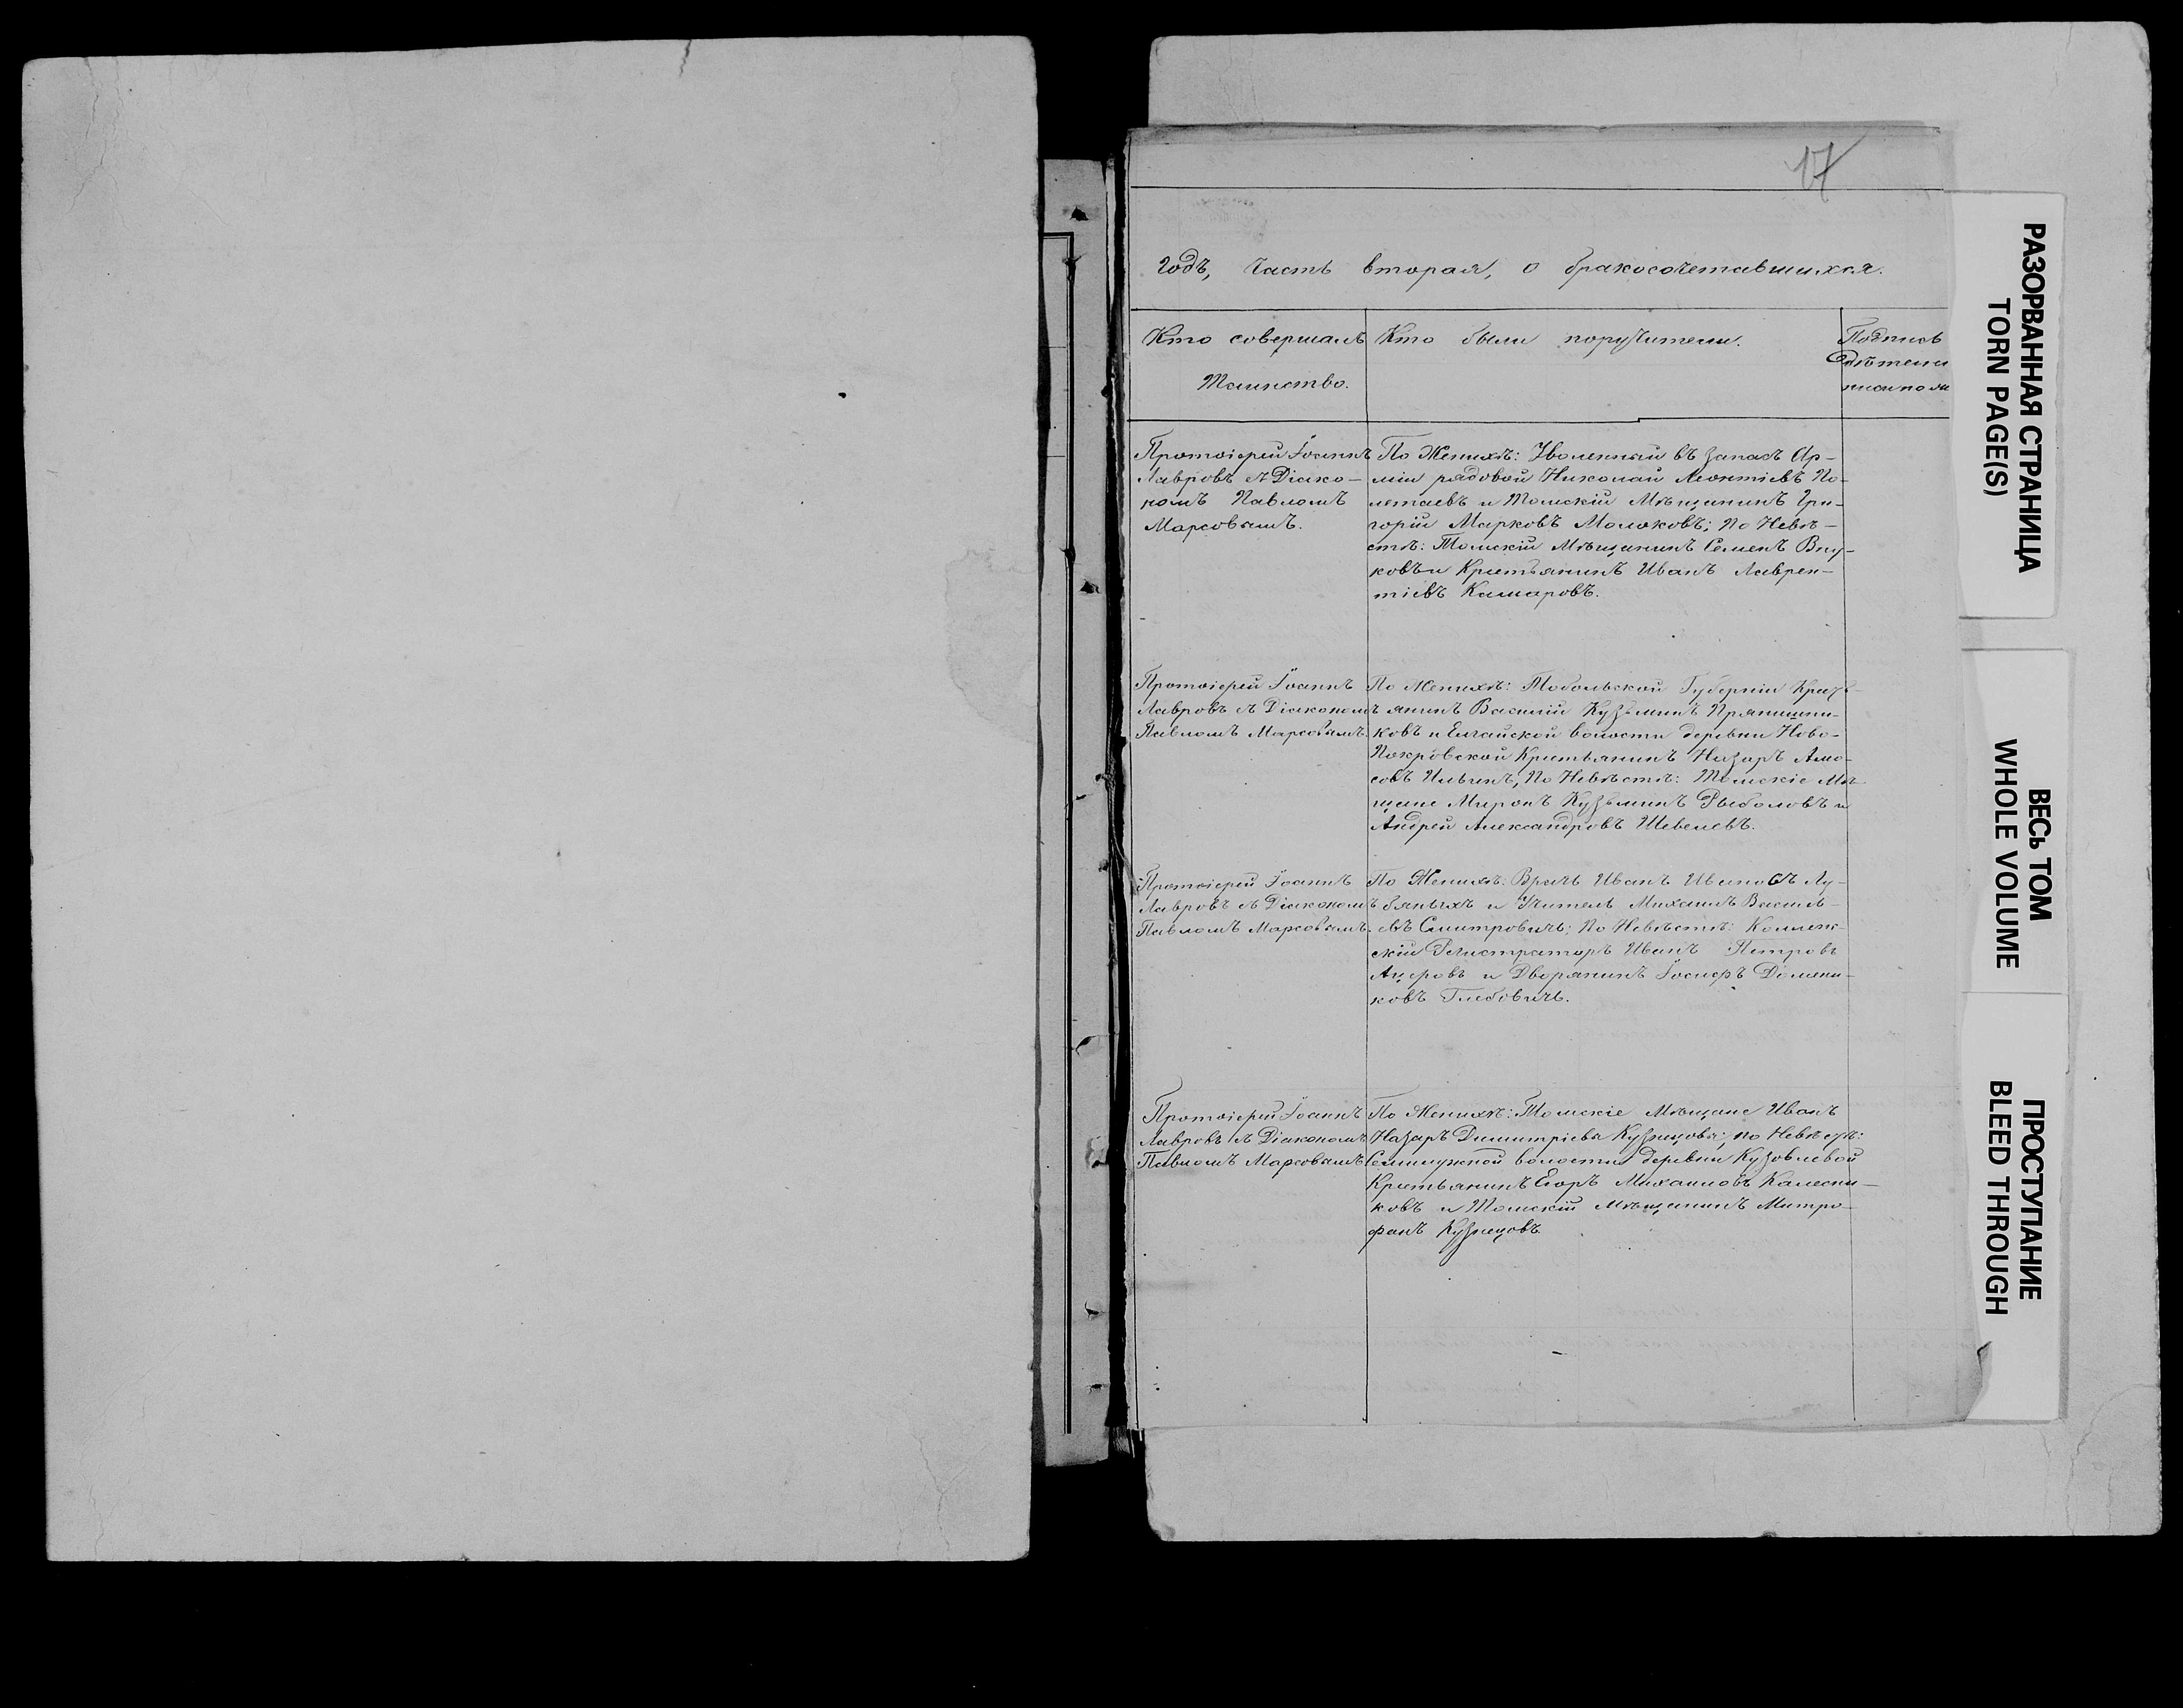 17
годъ, часть вторая, о бракосочетавшихся.
Кто совершалъ
Таинство.
Кто были поручители.
Подпись
Свѣтели
писи по же
Протоіерей Іоаннъ
Лавровъ съ Діако-
номъ Павломъ
Марсовымъ.
По Женихѣ: Уволенный въ запасъ Ар-
міи рядовой Николай Леонтіевъ По-
летаевъ и Томскій Мѣщанинъ Гри-
горій Марковъ Молоковъ; по Невѣ-
стѣ: Томскій Мѣщанинъ Семенъ Вну-
ковъ и Крестьянинъ Иванъ Лаврен-
тіевъ Камаровъ.
Протоіерей Іоаннъ
Лавровъ съ Діакономъ
Павломъ Марсовымъ.
По Женихѣ: Тобольской Губерніи Кресть-
янинъ Василій Кузьминъ Прянишни-
ковъ и Елгайской волости деревни Ново-
Покровской Крестьянинъ Назаръ Амо-
совъ Ильинъ, По Невѣстѣ: Томскіе Мѣ-
щане Миронъ Кузьминъ Рыболовъ и
Андрей Александровъ Шевелевъ.
Протоіерей Іоаннъ
Лавровъ съ Діакономъ
Павломъ Марсовымъ.
По Женихѣ: Врачъ Иванъ Ивановъ Лу-
бяныхъ и Учитель Михаилъ Василь-
евъ Смитровичъ; По Невѣстѣ: Коллеж-
скій Регистраторъ Иванъ Петровъ
Ацеровъ и Дворянинъ Іосифъ Домени-
ковъ Глебовичъ.
Протоіерей Іоаннъ
Лавровъ съ Діакономъ
Павломъ Марсовымъ
По Женихѣ: Томскіе Мѣщане Иванъ
Назаръ Димитріевы Кузнецовы; по Невѣстѣ:
Семилужной волости деревни Кузовлевой
Крестьянинъ Егоръ Михаиловъ Калесни-
ковъ и Томскій мѣщанинъ Митро-
фанъ Кузнецовъ.
РАЗОРВАННАЯ СТРАНИЦА
TORN PAGE(S)
ВЕСЬ ТОМ
WHOLE VOLUME
ПРОСТУПАНИЕ
BLEED THROUGH